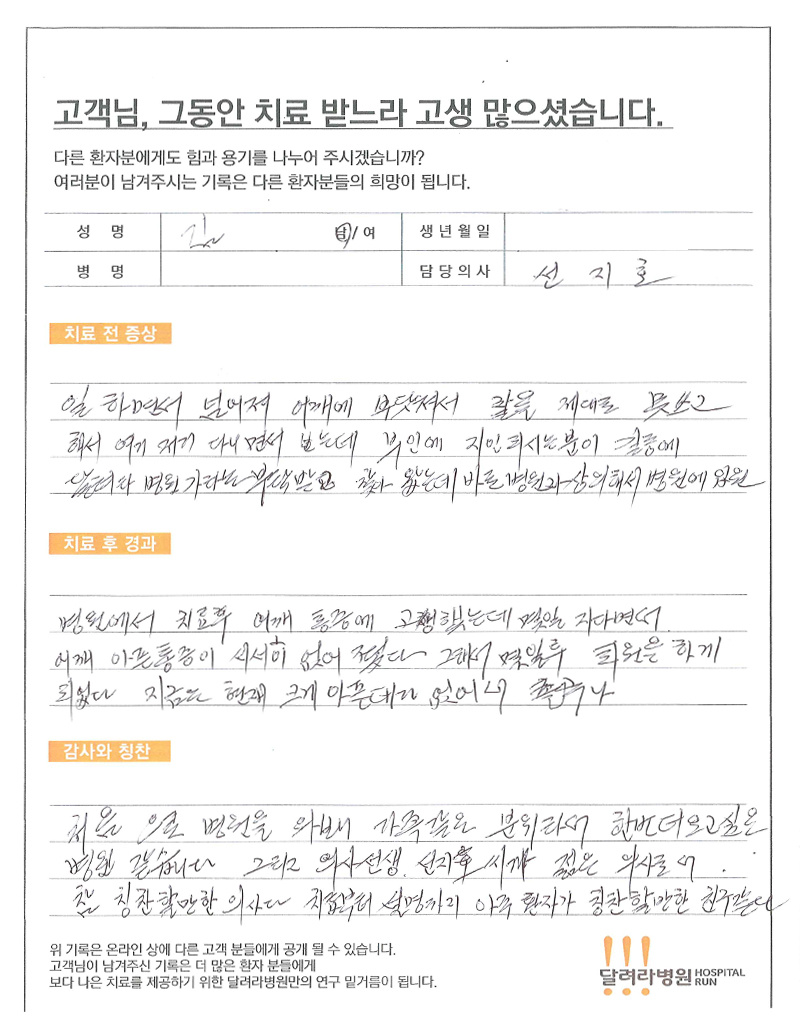 고객님, 그동안 치료 받느라 고생 많으셨습니다.
다른 환자분에게도 힘과 용기를 나누어 주시겠습니까?
여러분이 남겨주시는 기록은 다른 환자분들의 희망이 됩니다.
성 명 김 남/여 생년월일
병 명 담당의사 선지호
치료 전 증상
일 하면서 넘어져 어깨에 부닷쳐서 팔을 제대로 못쓰고
해서 여기 저기 다니면서 보는데 부인에 지인 되시는분이 길동에
달려라 병원 가라는 부탁받고 찾아 왔는데 바로 병원과 상의해서 병원에 입원
치료 후 경과
병원에서 치료후 어깨 통증에 고생했는데 몇일 지나면서
어깨 아픈통증이 서서히 없어 졌다 그래서 몇일후 퇴원은 하게
되었다 지금은 현재 크게 아픈데가 없어서
감사와 칭찬
처음 으로 병원을 와보니 가족같은 분위라서 한번더오고싶은
병원 같습니다 그리고 의사선생 선지호 씨가 젊은 의사로서
참 칭찬할만한 의사다 치료부터 설명까지 아주 환자가 칭찬할만한 친구같다
위 기록은 온라인 상에 다른 고객 분들에게 공개 될 수 있습니다.
고객님이 남겨주신 기록은 더 많은 환자 분들에게
보다 나은 치료를 제공하기 위한 달려라병원만의 연구 밑거름이 됩니다.
달려라병원 HOSPITAL RUN